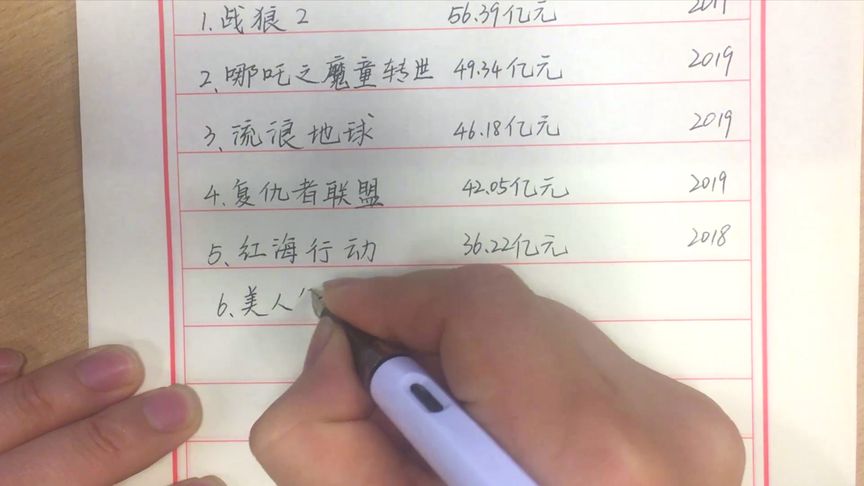 1.战狼2 56.39亿元 2017
2.哪吒之魔童转世 49.34亿元 2019
3.流浪地球 46.18亿元 2019
4.复仇者联盟 42.05亿元 2019
5.红海行动 36.22亿元 2018
6.美人